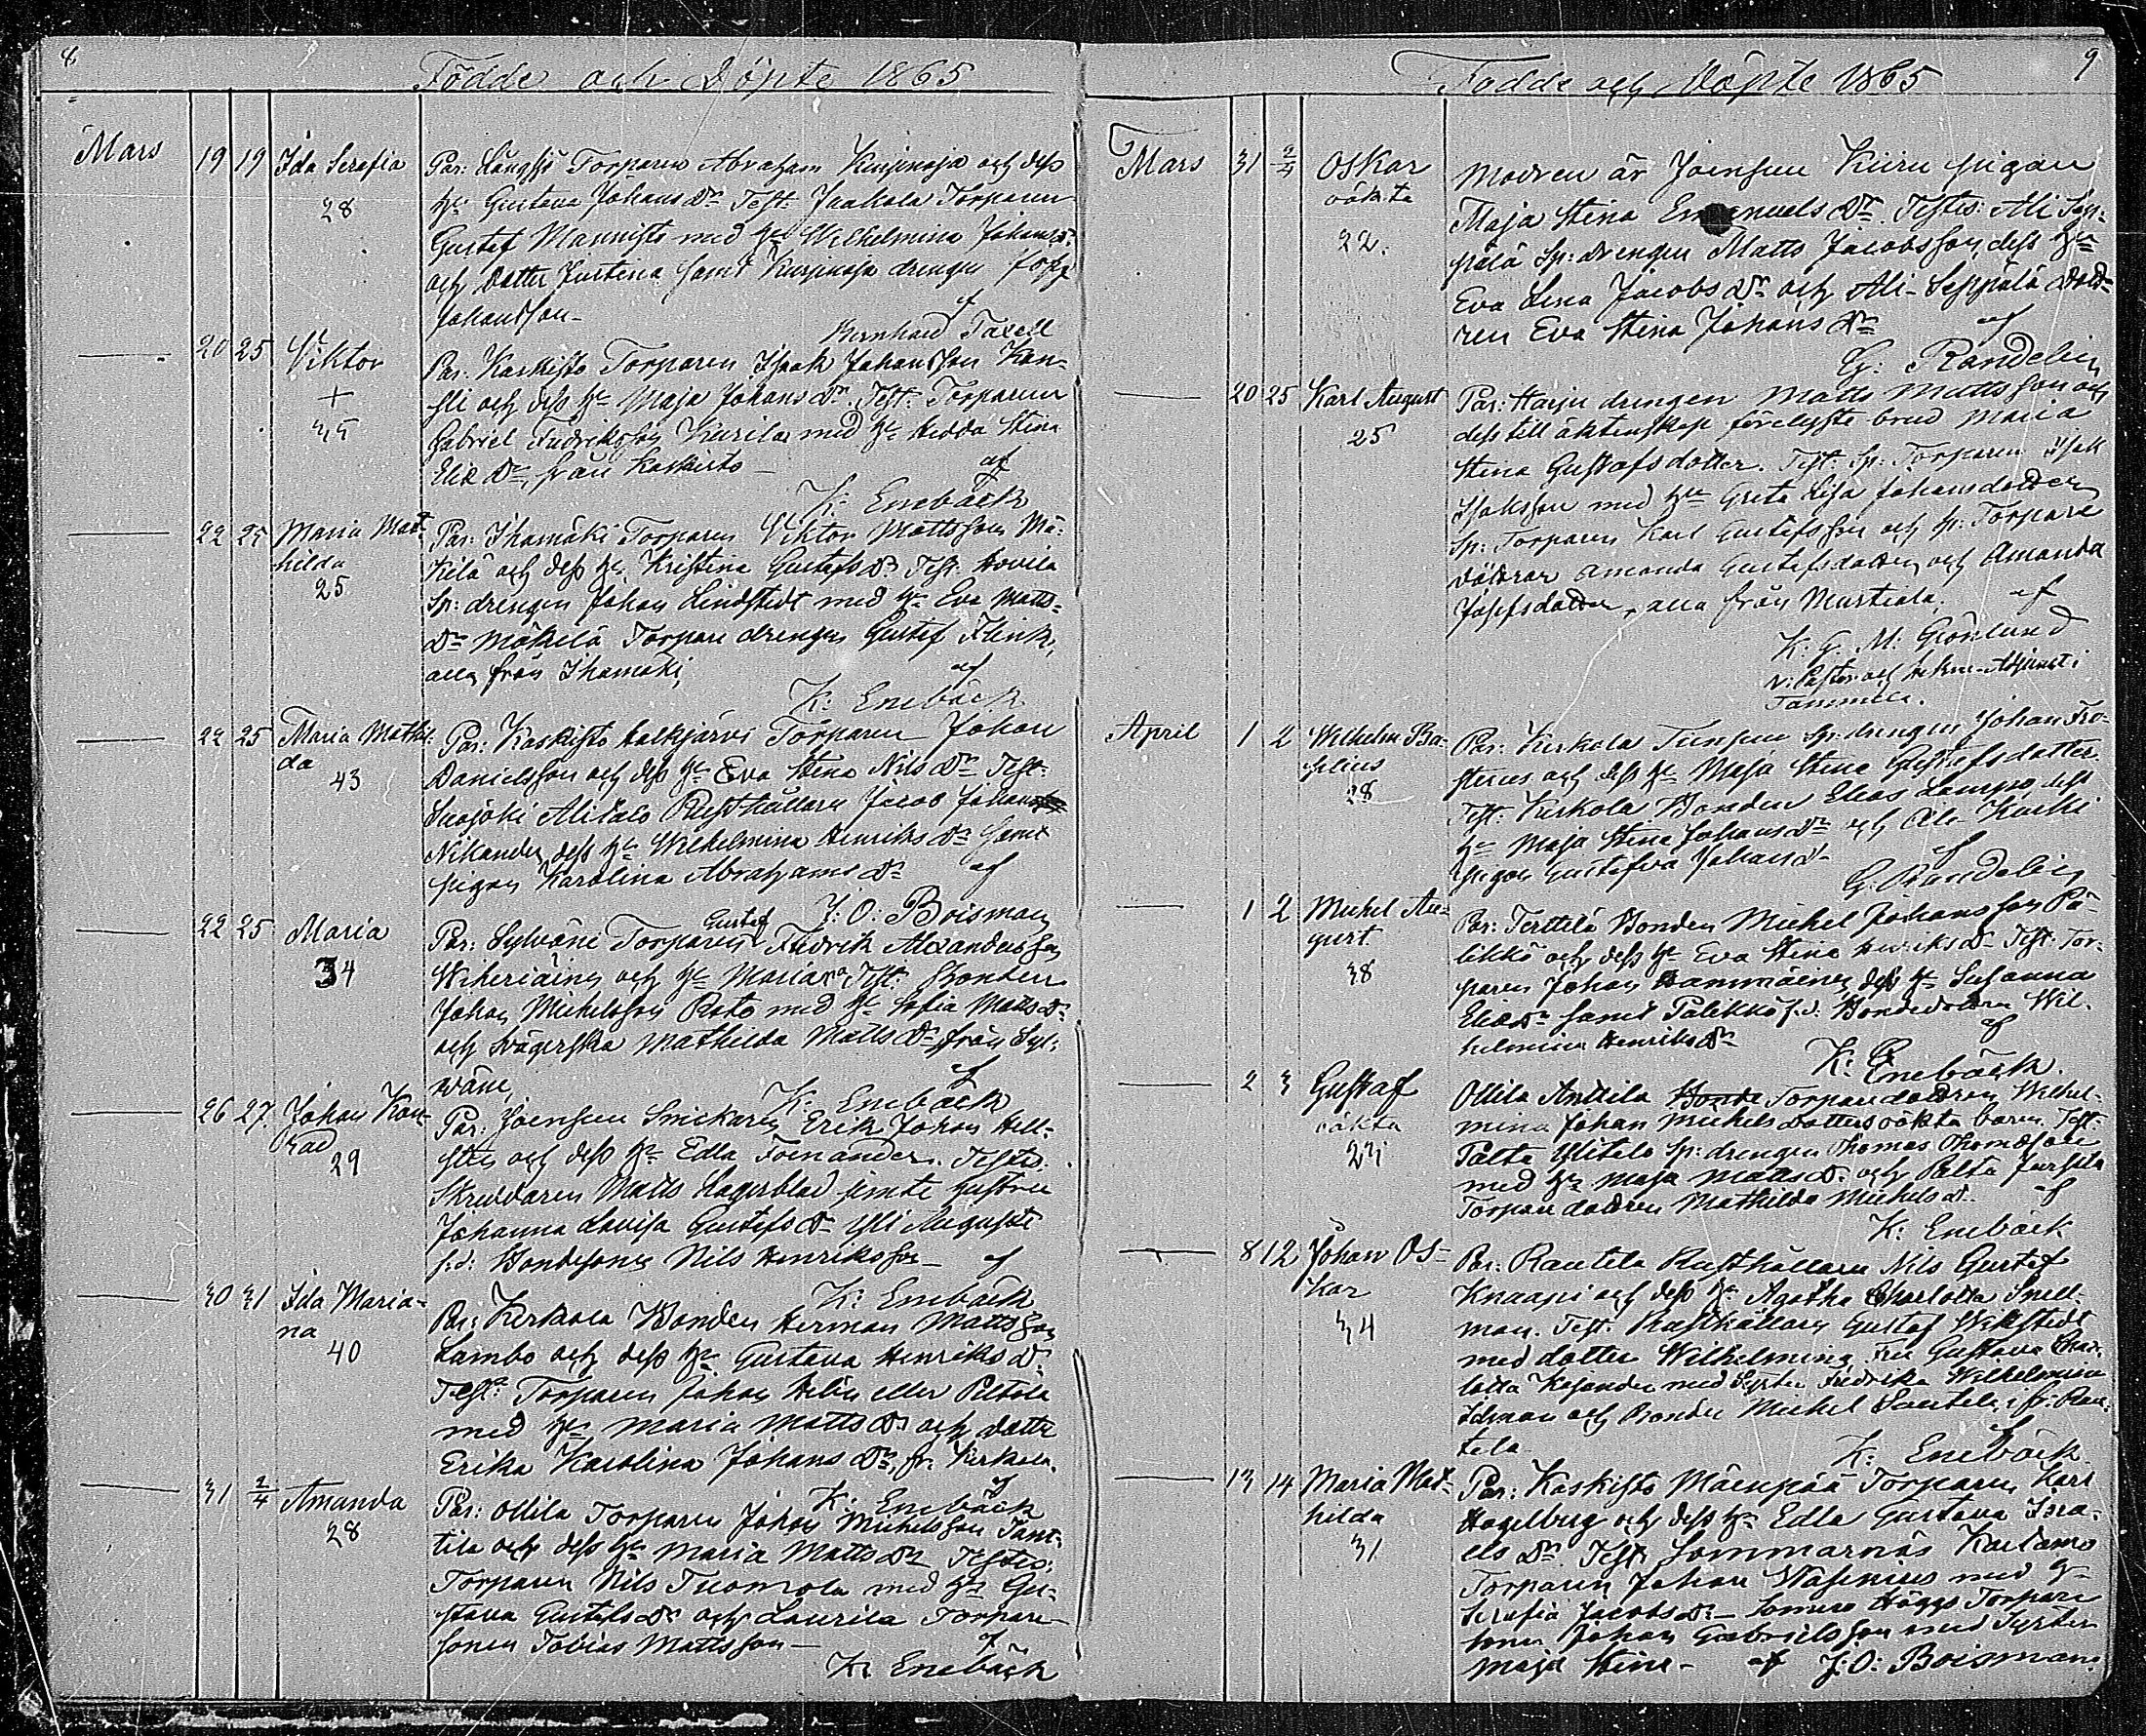 8
Födde och Döpte 1865
Mars 19 19 Ida Serafia 28
Par: Långsjö Torparen Abraham Kujinoja och dess
h: Gustava Johans dr. Test: Jaakola Torparen
Gustaf Mannisto med h: Wilhelmina Johans d:
och dotter Justina samt Kujinoja drengen
Johansson
af
Bernhard Taxell
20 25 Viktor + 35
Par. Kaskisto Torparen Isaak Johansson Kan-
sli och dess h: Maja Johans dr. Test: Torparen
Gabriel Fredriksson Kurila med h: Hedda Stina
Elia dr, från Kaskisto
af
K: Enebäck
22 25 Maria Mat-
hilda
25
Par: Ihamäki Torparen Viktor Mattsson Mä-
kilä och dess h: Kristina Gustafs dr Test: Hovila
Sp: drengen Johan Lindstedt med h: Eva Matts-
dr Mäkilä Torpare drengen Gustaf Flink,
alla från Ihamäki,
af
K: Enebäck
22 25 Maria Mathil-
da
43
Par: Kaskisto Valkjärvi Torparen Johan
Danielsson och dess h: Eva Stina Nils dr Test:
Suojoki Alitalo Rusthållaren Jacob Johan
Nikander, dess h: Wilhelmina Henriks dr samt
pigan Karolina Abrahams dr
af
J: O: Boisman
22 25 Maria
34
Par: Sylväne Torparen Gustaf Fredrik Alexandersson
Wiheriäinen och h: Maria Test: Bonden
Johan Michelsson Risto med h: Sofia Matts dr
och Svägerska Mathilda Matts dr, från Syl-
wäne,
af
K: Enebäck
26 27 Johan Kon-
rad
29
Par: Joensuu Snickaren Erik Johan Hell-
sten och dess h: Edla Fornander. Testes:
Skreddaren Matts Lagerblad jemte hustru
Johanna Lovisa Gustafs dr Yli Auguste
f.d: Bondesonen Nils Henriksson
af
K: Enebäck
30 31 Ida Maria-
na
40
Par: Kerkola Bonden Herman Mattsson
Lambo och dess h: Gustava Henriks dr
Test: Torparen Johan Helin eller Peltola
med h: Maria Matts dr och dotter
Erika Karolina Johans dr, fr. Kerkola.
af
K: Enebäck
31 2/4 Amanda
28
Par: Ollila Torparen Johan Michelsson Jant-
tila och dess h: Maria Matts dr Testes:
Torparen Nils Tuomola med h: Gu-
stava Gustafs dr och Laurila Torpare
sonen Tobias Mattsson
af
K: Enebäck
9
Födde och Döpte 1865
Mars 31 2/4 Oskar
oäkta
22.
Modren är Joensuu Kiiru pigan
Maja Stina Emanuels dr. Testes: Ali Sep-
pälä Sp: drengen Matts Jacobsson, dess h:
Eva Lena Jacobs dr och Ali-Seppälä dott-
ren Eva Stina Johans dr
af
G: Randelin
20 25 Karl August
25
Par: Harju drengen Matts Mattsson och
dess till äktenskap förelyste brud Maria
Stina Gustafsdotter. Test: Sp: Torparen Isak
Isaksson med h: Greta Lisa Johansdotter,
Sp: Torparen Karl Gustafsson och Sp: Torpare
döttrar Amanda Gustafsdotter och Amanda
Josefsdotter, alla från Murtiala.
af
K. G. M. Grönlund
v: Pastor och Adjunct i
Tammela.
April 1 2 Wilhelm Ba-
silius
28
Par: Kerkola Sp: drengen Johan Fro-
sterus och dess h: Maja Stina Gustafsdotter.
Test: Kerkola Bonden Elias Lampo, dess
h: Maja Stina Johans dr och
pigan Gustafva Johans dr
af
G. Randelin
1 2 Michel Au-
gust
38
Par: Terttilä Bonden Michel Johansson Pä-
likkö och dess h: Eva Stina Henriks dr Test: Tor-
paren Johan Hammainen, dess h: Susanna
Elias dr samt Pälikkö f.d: Bondedottren Wil-
helmina Henriks dr
af
K: Enebäck.
2 3 Gustaf
oäkta
23
Ollila Anttila Torpare dottren Wilhel-
mina Johan Michels dotters oäkta barn. Test:
Palta Ylitalo Sp: drengen Thomas Thomasson
med h: Maja Matts dr och Palta
Torpare dottren Mathilda Michels dr
af
K: Enebäck
8 12 Johan Os-
kar
34
Par: Rautela Rusthållaren Nils Gustaf
Knaapi och dess h: Agatha Charlotta Snell-
man. Test: Rusthållaren Gustaf Wikstedt
med dotter Wilhelmina, Gustava Char-
lotta Kasander med Syster Fredrika Wilhelmina
och Bonden Michel Santala, i fr: Rau-
tela
K: Enebäck
13 14 Maria Mat-
hilda
31
Par: Kaskisto Mäenpää Torparen Karl
Hagelberg och dess h: Edla Gustava Isra-
els dr Test: Sommarnäs
Torparen Johan Wasenius med h:
Serafia Jacobs dr Somero Höggs Torpare
sonen Johan Gabrielsson med Syster
Maja Stina
af J: O: Boisman